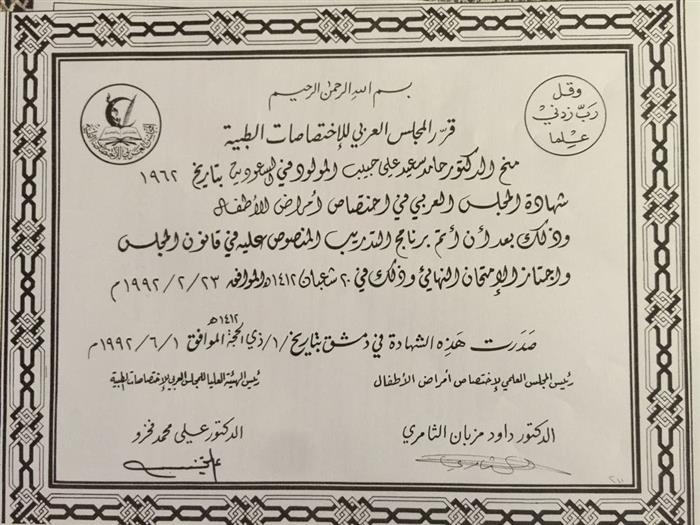 بسم الله الرحمن الرحيم
وقل
رب زدني
علما
قرّر المجلس العربي للاختصاصات الطبية
منح الدكتور حامد سعيد علي حبيب المولود في السعودية بتاريخ ١٩٦٢
شهادة المجلس العربي في اختصاص أمراض الأطفال
وذلك بعد أن أتم برنامج التدريب المنصوص عليه في قانون المجلس
واجتاز الإمتحان النهائي وذلك في ٢٠ شعبان ١٤١٢هـ الموافق ١٩٩٢/٢/٢٣م
صدرت هذه الشهادة في دمشق بتاريخ ١/ذي الحجة ١٤١٢هـ الموافق ١٩٩٢/٦/١م
رئيس المجلس العلمي لإختصاص أمراض الأطفال
رئيس الهيئة العليا للمجلس العربي للإختصاصات الطبية
الدكتور داود مزبان الثامري
الدكتور علي محمد فخرو
٢١١